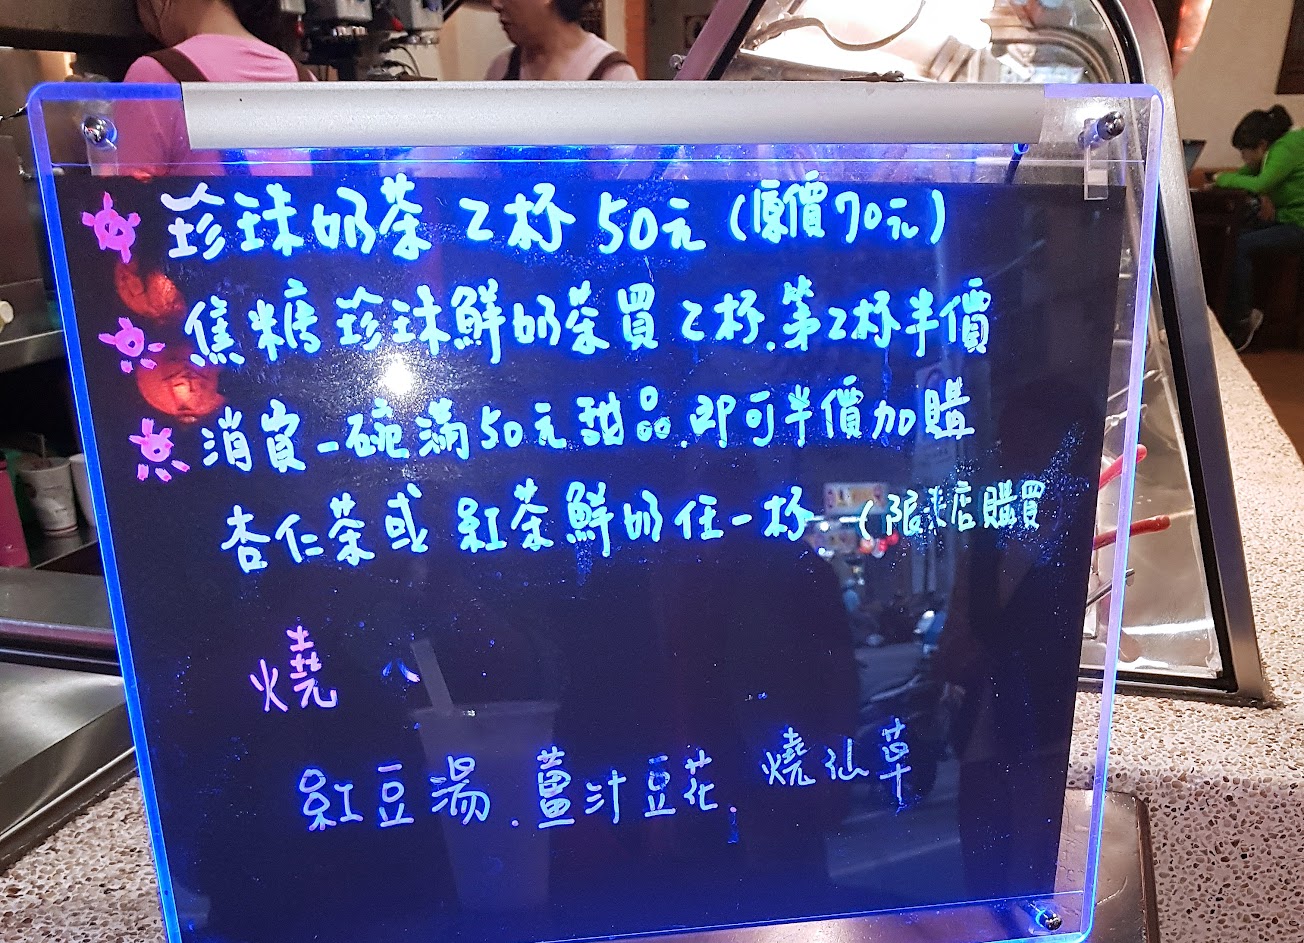 珍珠奶茶 2杯 50元 (原價70元)
焦糖珍珠鮮奶茶買 2杯.第2杯半價
消費一碗滿50元甜品.即可半價加購
杏仁茶或 紅茶鮮奶任一杯 (限來店購買
燒
紅豆湯.薑汁豆花.燒仙草